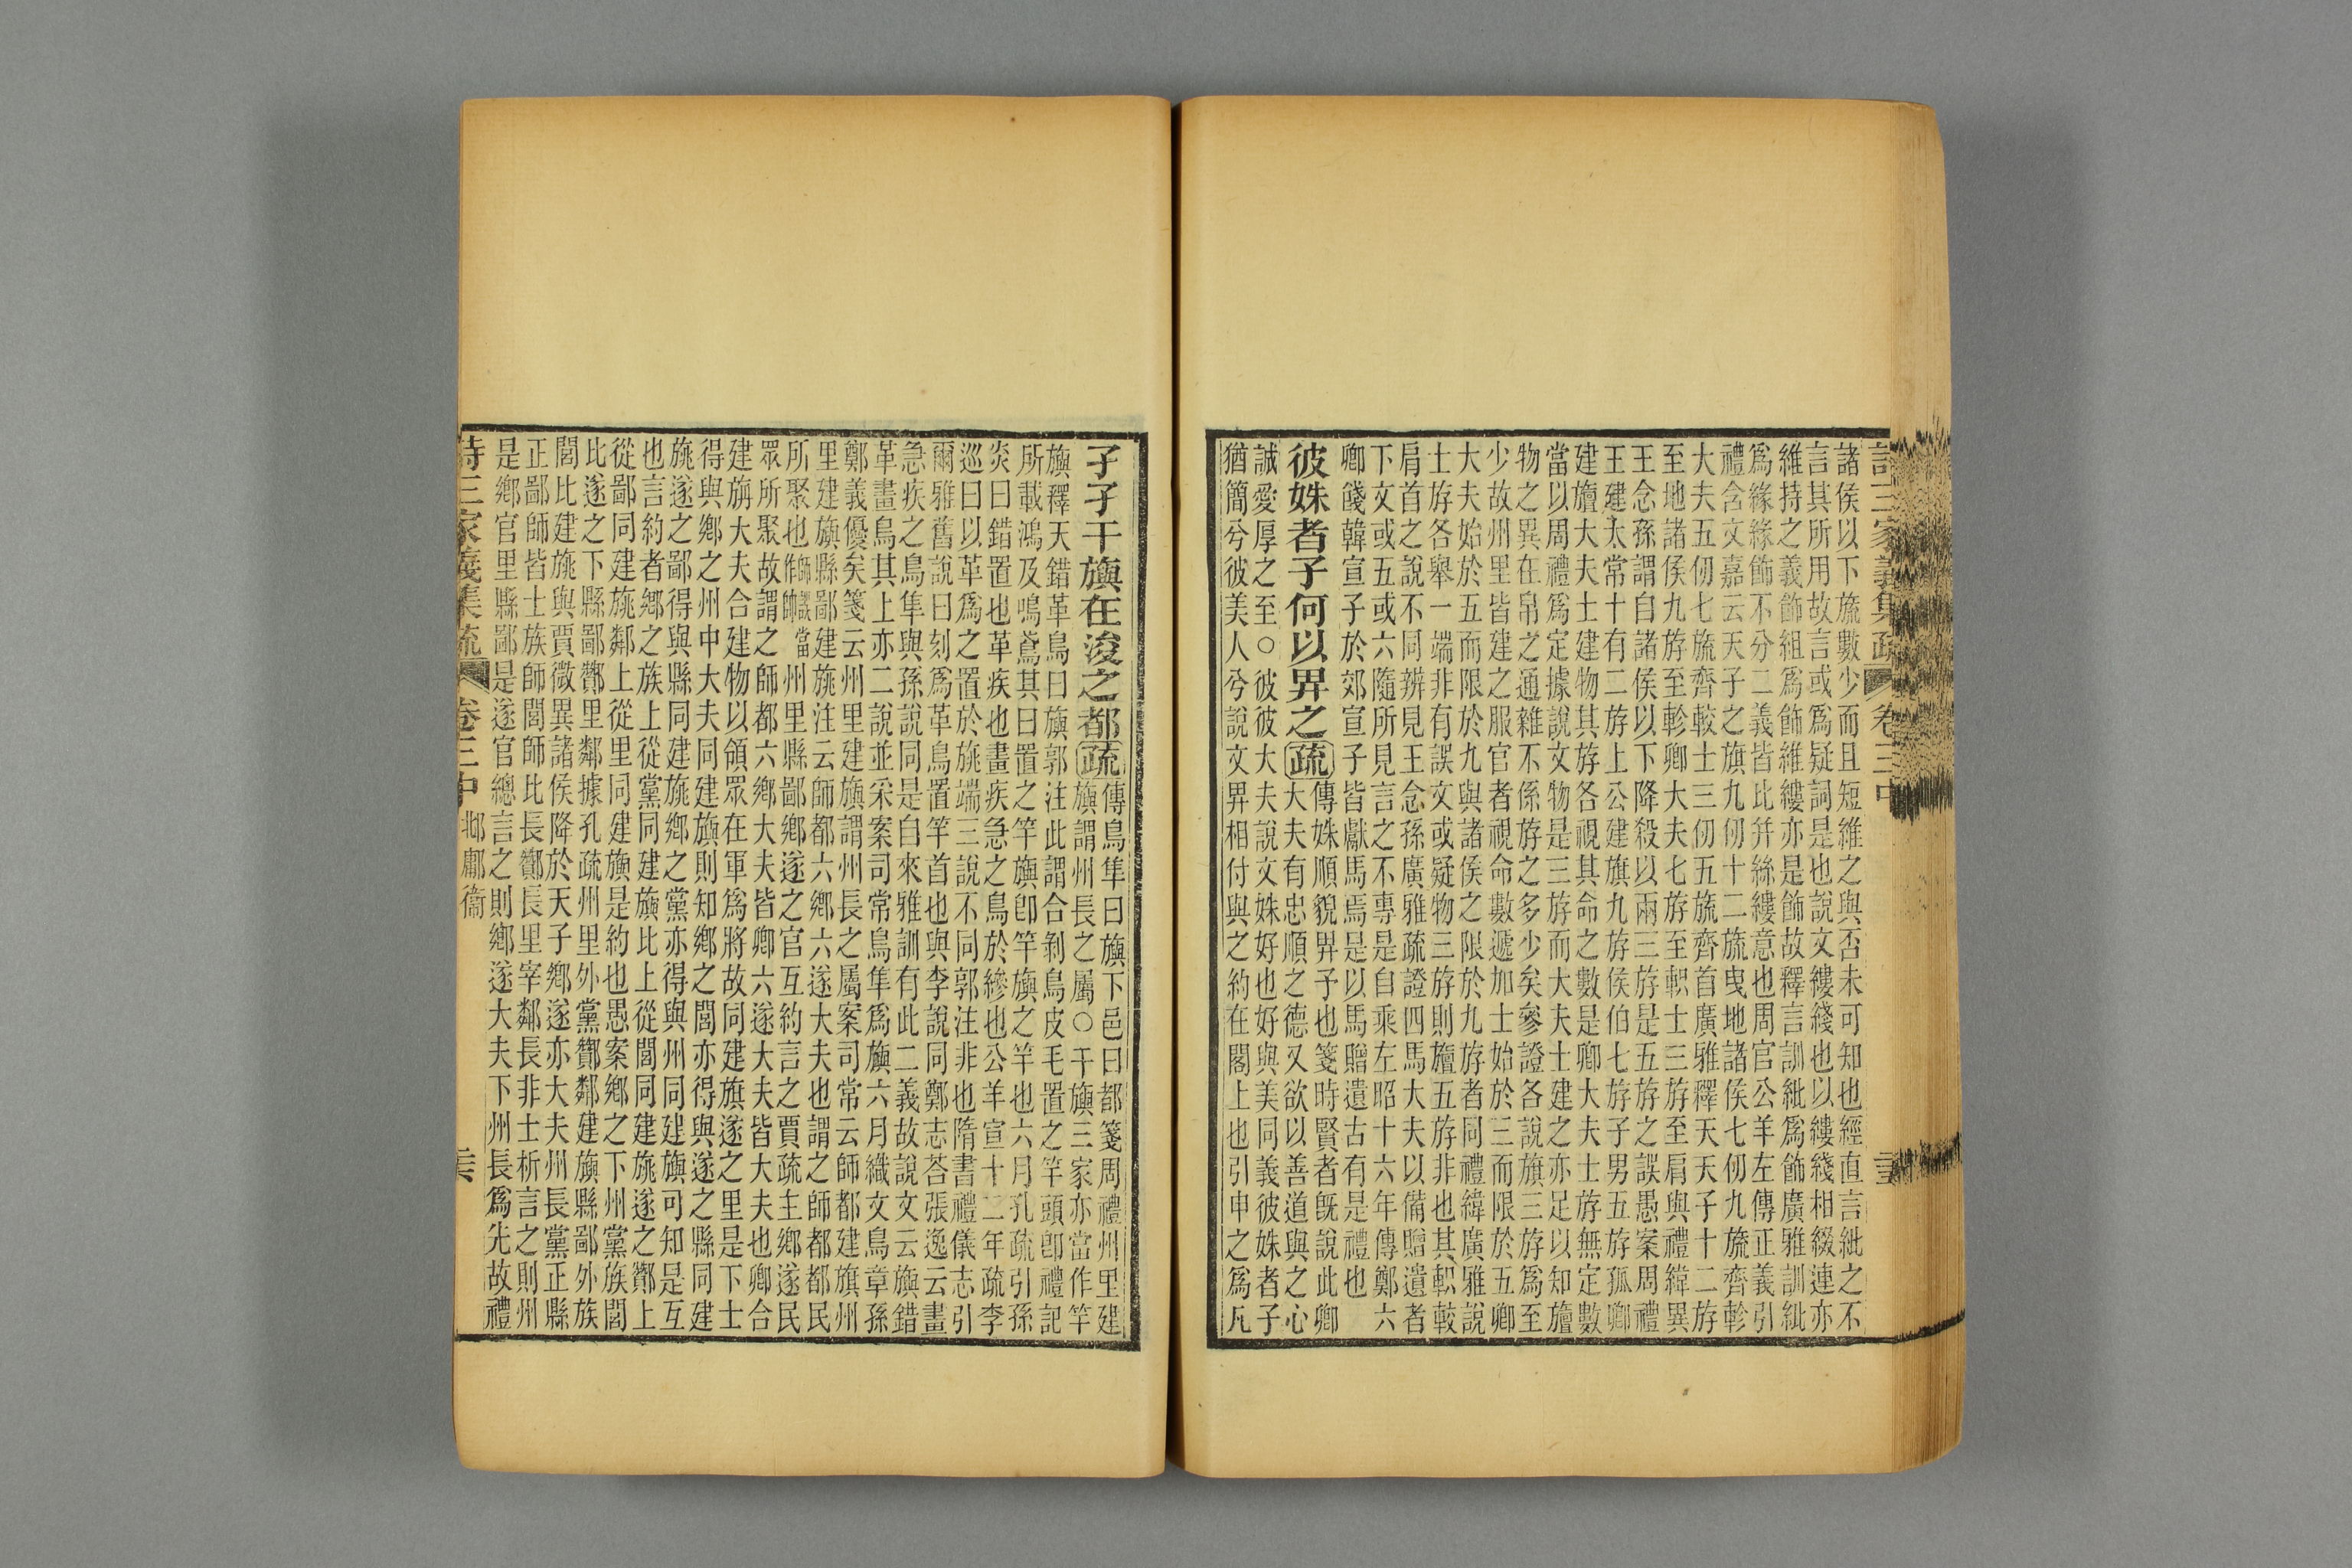 詩三家義集疏 卷三中
諸侯以下旒數少而且短維之與否未可知也經直言紕之不
言其所用故言或爲疑詞是也說文縷綫也以縷綫相綴連亦
維持之義飾組爲飾維縷亦是飾故釋言訓紕爲飾廣雅訓紕
爲緣緣飾不分二義皆比并絲縷意也周官公羊左傳正義引
禮含文嘉云天子之旗九仞十二旒曳地諸侯七仞九旒齊軫
大夫五仞七旒齊較士三仞五旒齊首廣雅釋天天子十二斿
至地諸侯九斿至軫卿大夫七斿至軹士三斿至肩與禮緯異
王念孫謂自諸侯以下降殺以兩三斿是五斿之誤愚案周禮
王建太常十有二斿上公建旗九斿侯伯七斿子男五斿孤卿
建旜大夫士建物其斿各視其命之數是卿大夫士斿無定數
當以周禮爲定據說文物是三斿而大夫士建之亦足以知旜
物之異在帛之通雜不係斿之多少矣參證各說旗三斿爲至
少故州里皆建之服官者視命數遞加士始於三而限於五卿
大夫始於五而限於九與諸侯之限於九斿者同禮緯廣雅說
士斿各舉一端非有誤文或疑物三斿則旜五斿非也其軹較
肩首之說不同辨見王念孫廣雅疏證四馬大夫以備贈遺者
下文或五或六隨所見言之不專是自乘左昭十六年傳鄭六
卿餞韓宣子於郊宣子皆獻馬焉是以馬贈遺古有是禮也
彼姝者子何以畀之疏傳姝順貌畀予也箋時賢者旣說此卿
大夫有忠順之德又欲以善道與之心
誠愛厚之至○彼彼大夫說文姝好也好與美同義彼姝者子
猶簡兮彼美人兮說文畀相付與之約在閣上也引申之爲凡
孑孑干旟在浚之都疏傳鳥隼曰旟下邑曰都箋周禮州里建
旟謂州長之屬○干旟三家亦當作竿
旟釋天錯革鳥曰旟郭注此謂合剝鳥皮毛置之竿頭卽禮記
所載鴻及鳴鳶其曰置之竿旟卽竿旟之竿也六月孔疏引孫
炎曰錯置也革疾也畫疾急之鳥於縿也公羊宣十二年疏李
巡曰以革爲之置於旐端三說不同郭注非也隋書禮儀志引
爾雅舊說曰刻爲革鳥置竿首也與李說同鄭志荅張逸云畫
急疾之鳥隼與孫說同是自來雅訓有此二義故說文云旟錯
革畫鳥其上亦二說並采案司常鳥隼爲旟六月織文鳥章孫
鄭義優矣箋云州里建旟謂州長之屬案司常云師都建旗州
里建旟縣鄙建旐注云師都六鄉六遂大夫也謂之師都都民
所聚也師讀當作帥州里縣鄙鄉遂之官互約言之賈疏主鄉遂民
眾所聚故謂之師都六鄉大夫皆卿六遂大夫皆大夫也卿合
建旃大夫合建物以領眾在軍爲將故同建旗遂之里是下士
得與鄉之州中大夫同建旟則知鄉之閭亦得與遂之縣同建
旐遂之鄙得與縣同建旐鄉之黨亦得與州同建旟可知是互
也言約者鄉之族上從黨同建旟比上從閭同建旐遂之酇上
從鄙同建旐鄰上從里同建旟是約也愚案鄉之下州黨族閭
比遂之下縣鄙酇里鄰據孔疏州里外黨酇鄰建旟縣鄙外族
閭比建旐與賈微異諸侯降於天子鄉遂亦大夫州長黨正縣
正鄙師皆士族師閭師比長酇長里宰鄰長非士析言之則州
是鄉官里縣鄙是遂官總言之則鄉遂大夫下州長爲先故禮
詩三家義集疏 卷三中 邶鄘衞